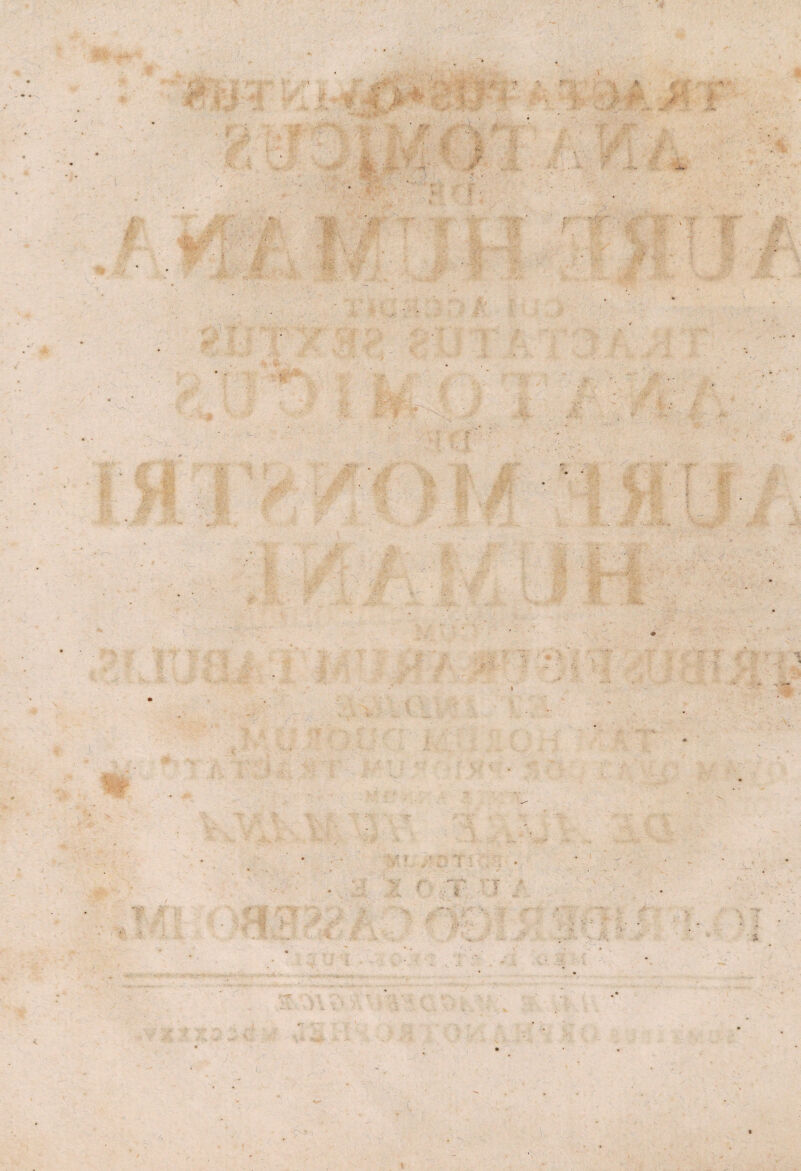 TRACTATUS QVINTUS
ANATOMICUS
DE
AURE HUMANA.
CUI ACCEDIT
TRACTATUS SEXTUS
ANATOMICUS
DE
AURE MONSTRI
HUMANI.
CUM
TRIBUS FIGURARUM TABULIS.
ET INDICE
TAM HORUM DUORUM,
QVAM QVATUOR PRIORUM TRACTATUUM
DE AURE HUMANA
EDITORUM
AUTORE
IO. FRIDERICO CASSEBOHM,
HALÆ MAGDEBURGICÆ
SUMTIBUS ORPHANOTROPHEI, MDCCXXXV.